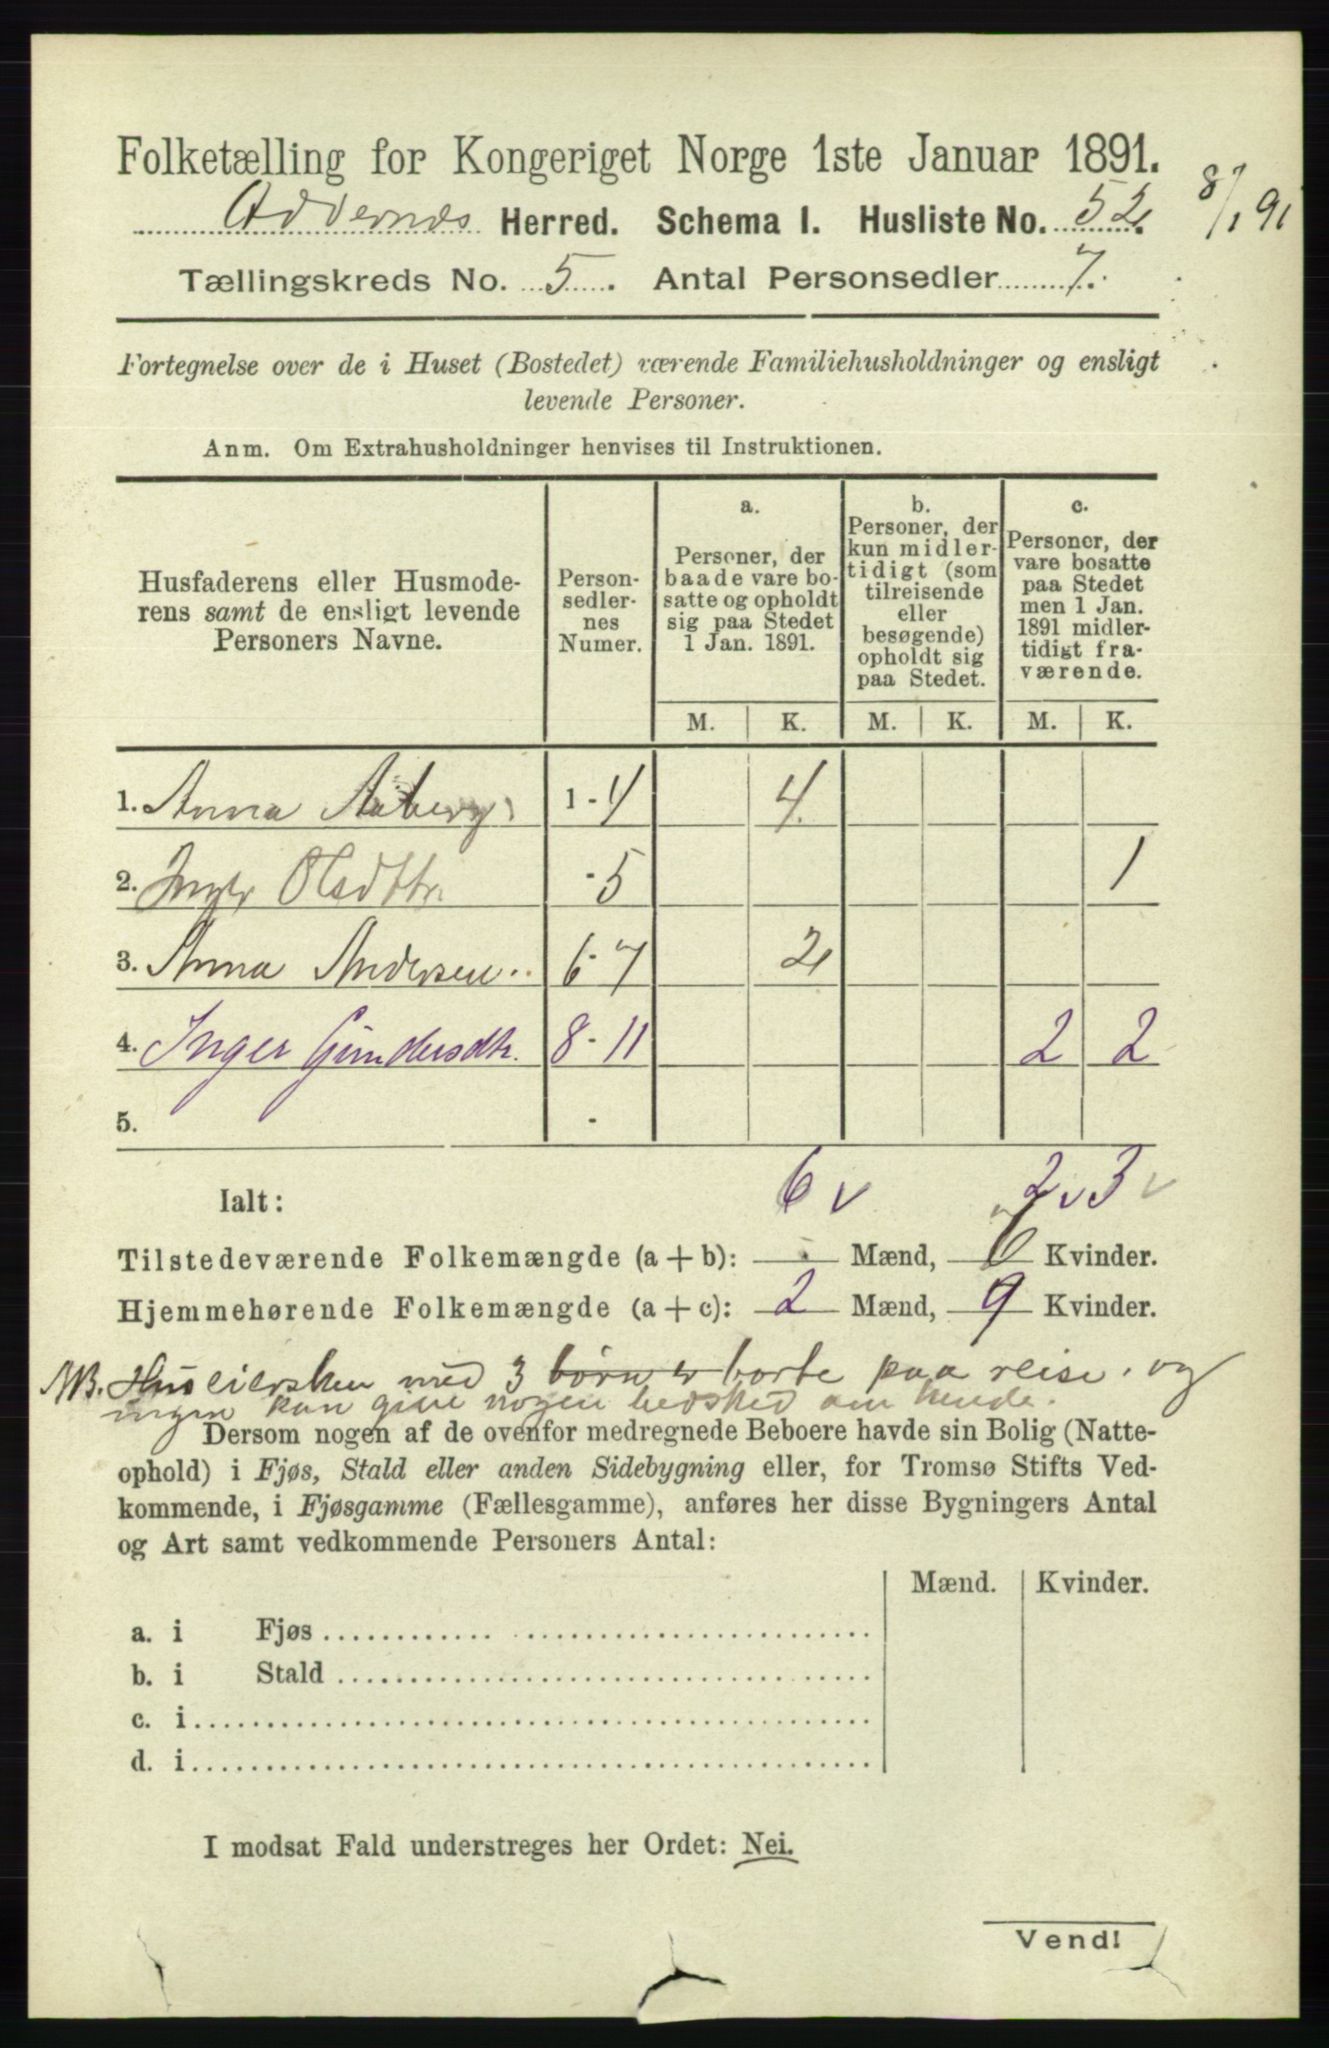 Folketælling for Kongeriget Norge 1ste Januar 1891.
Oddernes Herred. Schema I. Husliste No. 52. 8/1 91
Tællingskreds No. 5. Antal Personsedler 7.
Fortegnelse over de i Huset (Bostedet) værende Familiehusholdninger og ensligt
levende Personer.
Anm. Om Extrahusholdninger henvises til Instruktionen.
Husfaderens eller Husmode-
rens samt de ensligt levende
Personers Navne.
Person-
sedler-
nes
Numer.
a.
Personer, der
baade vare bo-
satte og opholdt
sig paa Stedet
1 Jan. 1891.
b.
Personer, der
kun midler-
tidigt (som
tilreisende
eller
besøgende)
opholdt sig
paa Stedet.
c.
Personer, der
vare bosatte
paa Stedet
men 1 Jan.
1891 midler-
tidigt fra-
værende.
M. K. M. K. M. K.
1. Anna Aaberg 1 - 4 4
2. Inger Olsdtr - 5 1
3. Anna Andersen 6 - 7 2
4. Inger Gundersdtr. 8 - 11 2 2
5. -
Ialt: 6 v 2 v 3 v
Tilstedeværende Folkemængde (a + b): Mænd, 6 Kvinder.
Hjemmehørende Folkemængde (a + c): 2 Mænd, 9 Kvinder.
NB. Huseiersken med 3 børn er borte paa reise, og
ingen kan give nogen besked om hende.
Dersom nogen af de ovenfor medregnede Beboere havde sin Bolig (Natte-
ophold) i Fjøs, Stald eller anden Sidebygning eller, for Tromsø Stifts Ved-
kommende, i Fjøsgamme (Fællesgamme), anføres her disse Bygningers Antal
og Art samt vedkommende Personers Antal:
Mænd. Kvinder.
a. i Fjøs
b. i Stald
c. i
d. i
I modsat Fald understreges her Ordet: Nei.
Vend!